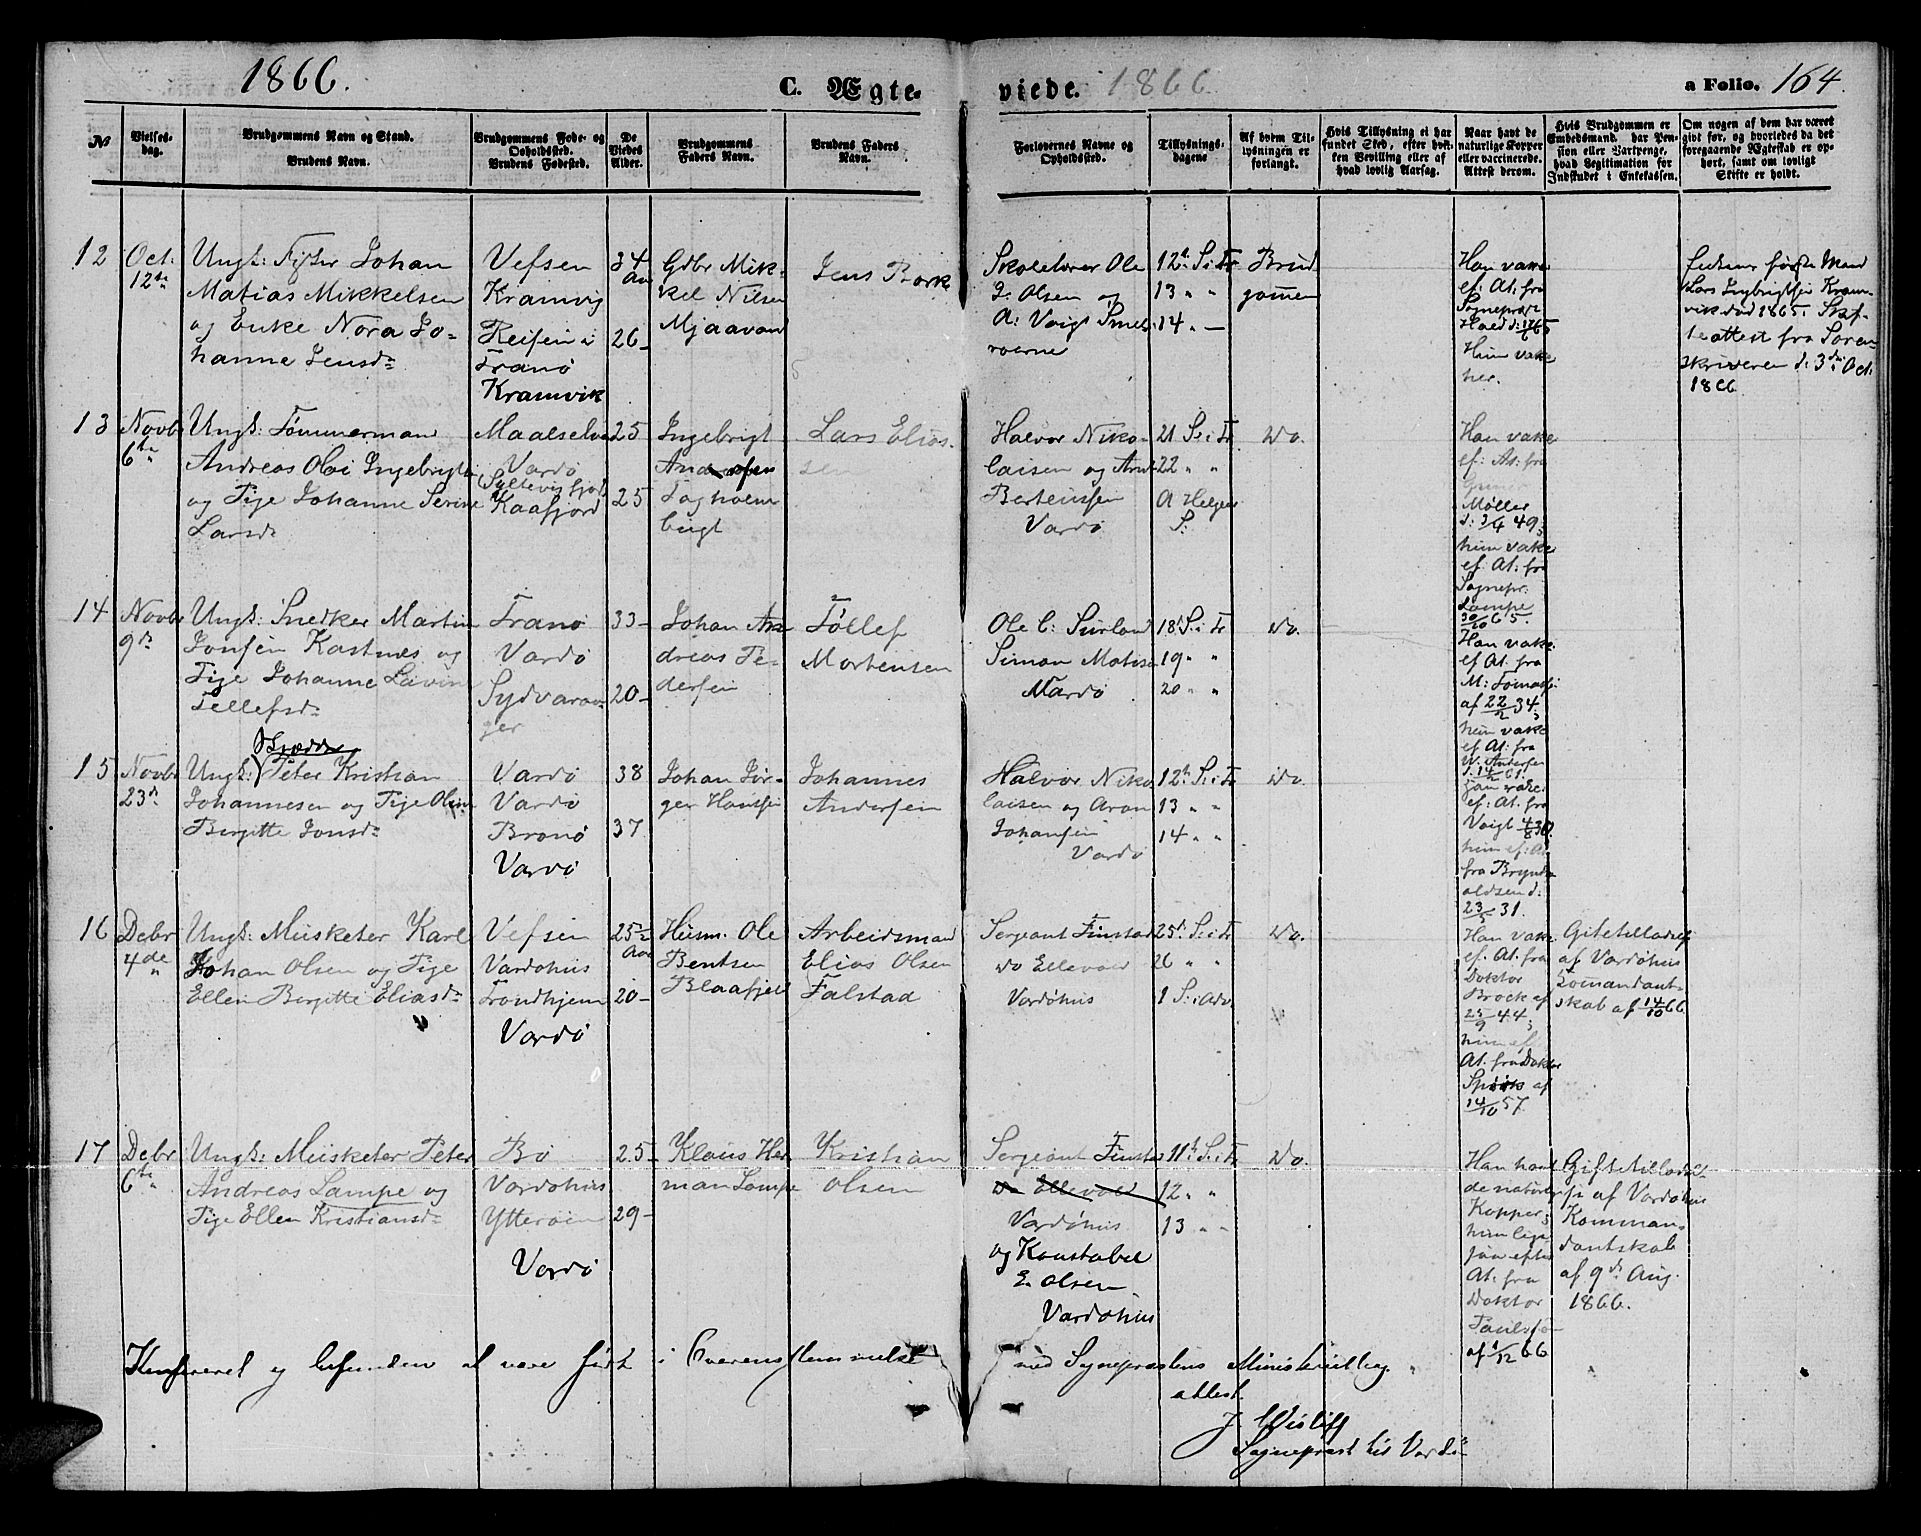 1866.
C. Ægte-
viede. 1866
a Folio. 164.
№
Vielses-
dag.
Brudgommens Navn og Stand.
Brudens Navn.
Brudgommens Føde- og
Opholdssted.
Brudens Fødested.
De
Viedes
Alder.
Brudgommens
Faders Navn.
Brudens Faders
Navn.
Forlovernes Navne og
Opholdssted.
Tillysnings-
dagene
Af hvem Til-
lysningen er
forlangt.
Hvis Tillysning ei har
fundet Sted, efter hvil-
ken Bevilling eller af
hvad lovlig Aarsag.
Naar havt de
naturlige Kopper
eller vaccinerede.
Attest derom.
Hvis Brudgommen er
Embedsmand, har Pen-
sion eller Vartpenge,
hvad Legitimation for
Indskudet i Enkekassen.
Om nogen af dem har været
givt før, og hvorledes da det
foregaaende Ægteskab er op-
hørt, samt om lovligt
Skifte er holdt.
12
Oct.
12te
Ungk: Johan
Matias Mikkelsen
og Enke Nora Jo-
hanne Jensd
Vefsen
Kramvig
Reisen i
Tranö
Kramvik
34
Aar
26
Gdbr Mik-
kel Nilsen
Mjaavand
Jens Bork
Skolelærer Ole
J. Olsen og
A: Voigt
12te S. i Tr
13 " "
14 " -
Brud
gomen
Han vakc
ef. At. fra
Sognepræst
Hun vakc
her.
første Mand
Lars Ingbrigtsen Kram-
vik död 1865. Skif-
teattest fra Soren-
skriveren d. 3die Oct.
1866
13
Novbr
6te
Ungk: Tömmermand
Andreas Olai Ingebrigts
og Pige Johanne Serine
Larsd
Maalselv
Vardö
(Syltevigfjord)
Kaafjord
25
25
Ingebrigt
Fagholm
bugt
Lars Elias-
sen
Halvor Niko-
laisen og Arnt
Berteussen
Vardö
21 S. i Tr
22 " "
A Helgen
S:
Do.
Han vakc
ef: At: fra
Møller
d: 3/4 49,
hun vakc
ef. At: fra
Sognepr:
Lampe
30/10 65.
14
Novbr
9de
Ungk: Snedker Martin
Jonsen Kastnes og
Pige Johanne Lavine
Tellefsd
Tranö
Vardö
Sydvaran-
ger
33
20
Johan An-
dreas Pe-
dersen
Töllef
Mortensen
Ole C: Surland
Simon Matisen
Vardö
18de S. i Tr
19 " "
20 " "
Do.
Han vakc
ef At. fra
M: Tomassen
af 22/2 34,
hun vakc
ef At. fra
W. Andersen
d. 14/2 61.
15
Novbr
23de
Ungk: Peter Kristian
Johannesen og Pige Oline
Birgitte Jonsd
Vardö
Vardö
Brönö
Vardö
38
37
Johan Jör-
ger Hansen
Johannes
Andersen
Halvor Niko
laisen og Aron
Johansen
Vardö
12te S. i Tr
13 " "
14 " "
Do.
han vakc
ef: At. fra
Voigt 4/8 30.
hun ef: At
fra Brynd-
aldsen d:
23/5 31.
16
Debr
4de
Ungk: Musketer Karl
Johan Olsen og Pige
Ellen Birgitte Eliasd
Vefsen
Vardöhus
Trondhjem
Vardö
25½
Aar
20
Husm. Ole
Bentsen
Blaafjel
Arbeidsmand
Elias Olsen
Falstad
Sergeant Finstad
Do Ellevold
Vardöhus
25de S. i Tr
26 " "
1 S. i Adv
Do.
Han vakc
ef. At. fra
Doktor
Brock af
25/9 44,
hun ef
At. fra Doktor
Spörk af
14/10 57.
Giftetilladsel
af Vardöhus
Komandant-
skab af 14/10 66
17
Debr
6te
Ungk: Musketer Peter
Andreas Lampe og
Pige Ellen Kristiansd
Bö
Vardöhus
Ytteröen
Vardö
25
29
Klaus Her
man Lampe
Kristian
Olsen
Sergeant Finstad
Do Ellevold
Vardöhus
og Konstabel
E. Olsen
Vardöhus
11te S. i Tr
12 " "
13 " "
Do.
Han havt
de naturl.
Kopper,
hun lige-
saa efter
At. fra
Doktor
Paulsen
af 1/12 66
Giftetilladel
se af Vardöhus
Komman-
dantskab
af 9de Aug.
1866.
Konfereret og befunden at være ført i Overensstemmelse
med Sognepræstens Ministerialbog
attest.
J. Wisløff
Sognepræst til Vardö